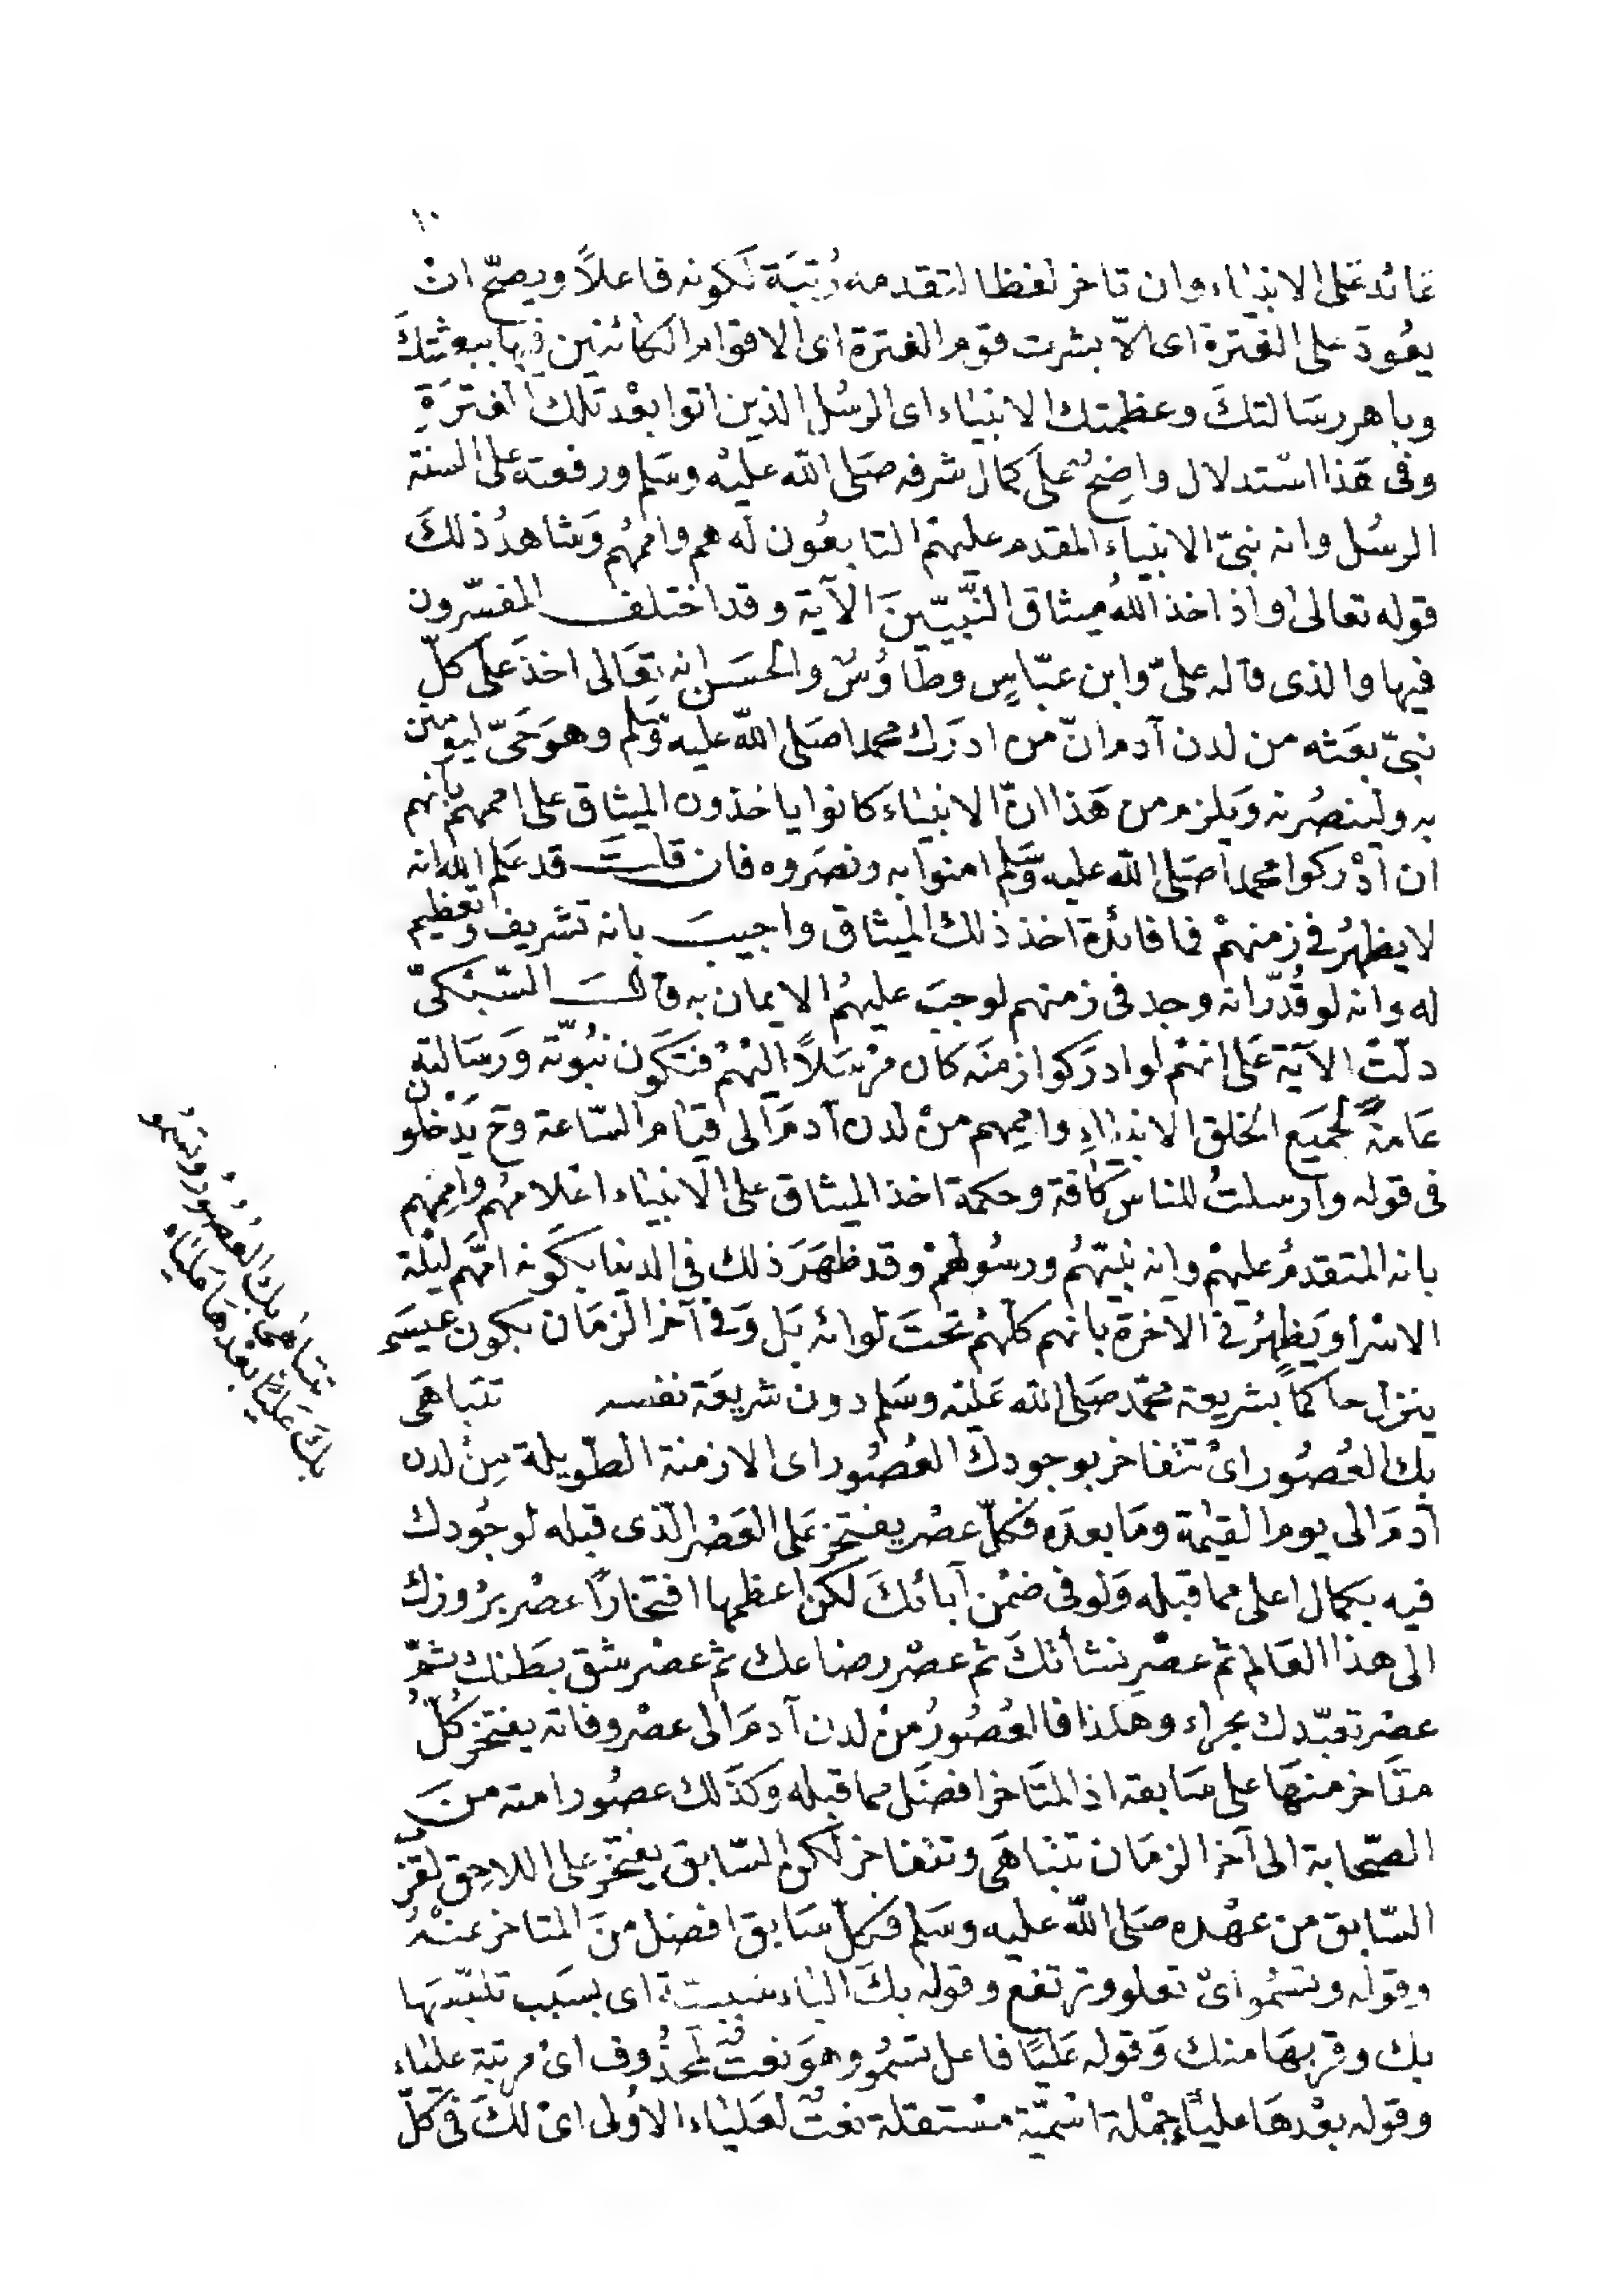 ١٠
عائد على الانبياء وان تاخر لفظا لتقدمه رُتبَة لكونه فاعلاً ويصحّ ان
يعُودَ على الفترة اى الاّ بشرت قوم الفترة اى الاقوام الكائنين فيها ببعثتكَ
وباهر رسَالتكَ وعظمتك الانبياء اى الرسُل الذين اتوا بعْد تلك الفترَةِ
وفى هَذا استدلال واضِحٌ علَى كمال شرفه صَلى الله عليْه وسَلم ورفعته على السنة
الرسُل وانه نبىّ الانبياءِ المقدم عليهمْ التابعُون له هم واممهُم وَشاهدُ ذلكَ
قوله تعالى واذ اخذ اللهُ ميثاق النَّبيّينَ الآية وقد اختلف المفسّرون
فيها والذى قاله علىّ وابن عبّاسٍ وطاوُسٌ والحسَن انه تعَالى اخذَ علَى كلّ
نبىّ بعَثه من لدن آدم انّ من ادرَك محمدا صَلى اللّه عليه وَسَلم وهوَ حَىّ ليؤمنن
به ولينصُرنه وَيلزم من هَذا انّ الانبيَاءَ كانوا ياخذون الميثاق على اممهمْ بانهم
ان ادْركوا محمداً صَلى اللّه عليه وَسَّلم امنوا به ونصَروه فان قلتَ قد عَلم الله انه
لا يظهرُ فى زمنهمْ فما فائدة اخذ ذلك الميثاق واجيبَ بانه تشريف وتعظيم
له وانه لو قُدّر انه وجد فى زمنهم لوجبَ عليهمُ الايمان به قالَ السّبْكىّ
دلّتْ الآيَة عَلى انهمْ لو ادرَكوا زمنَه كان مرْسَلاً اليْهمْ فتكَون نبُوّته وَرسَالته
عَامّةً لجميَع الخلق الانبياءِ واممهم منْ لدن آدمَ الى قيَام السّاعة وح يَدْخلون
فى قوله وارسلتُ للناس كافّة وحكمة اخذ الميثاق على الانبيَاء اعْلامهُم واممهم
بانه المتقدمُ عليهمْ وانه نبيّهُم ورسُولهمْ وقد ظهَرَ ذلك فى الدنيا بكَونه امّهَم ليْلة
الاسْرا ويَظهرُ فى الآخرَة بانهم كلّهمْ تحتَ لوائه بَل وَفى آخر الزمَان بكون عيسَى
ينزل حاكماً بشريعة محمّد صَلى الله عَليْه وسَلم دون شريعَة نفسه تتبَاهَى
بك العُصُور اىْ تتفاخر بوجودك العُصُور اى الازمنة الطّويلة مِنْ لدن
آدمَ الى يوم القيٰمة ومَا بعدَه فكلّ عصْر يفتخر عَلى العَصْر الّذى قبله لوجُودك
فيه بكمال اعلى مما قبله وَلو فى ضمْن آبائكَ لكن اعظمها افتخارًا عصْر برُوزك
الى هذا العَالم ثم عصْر نشأتكَ ثم عصْر رضاعك ثم عصْر شق بطَنك ثمّ
عصْر تعبّدك بحراء وهكذا فالعُصُورُ منْ لدن آدمَ الى عصْر وفاته يفتخر كُلّ
متَاخر منهَا على سَابقه اذ المتَاخر افضَل مما قبله وَكذَلك عصُور امته منَ
الصّحابة الى آخر الزمَان تتباهَى وتتفاخر لكن السّابق يفتخر على اللاحِق لقرْب
السّابق من عهْده صَلى اللّه عليه وسَلم فكلّ سَابق افضل منَ المتاخر عنهُ
وقوله وتسْمُو اىْ تعلو وترتفع وقوله بكَ الباء سببيّة اى بسَبب تلبّسهَا
بك وقربهَا منك وَقوله عَليَا فاعل تسْمُو وهوَ نعتٌ لمحذُوف اىْ مرتبة عليَاء
وقوله بعْدهَا علياءُ جمْلة اسْميّة مسْتقلة نعتٌ لعَليَاء الاوُلى اىْ لكَ فى كلّ
تتباهَى بك العُصُورُ وتسْمُو
بكَ عَليَا بعْدهَا عَليَاءُ